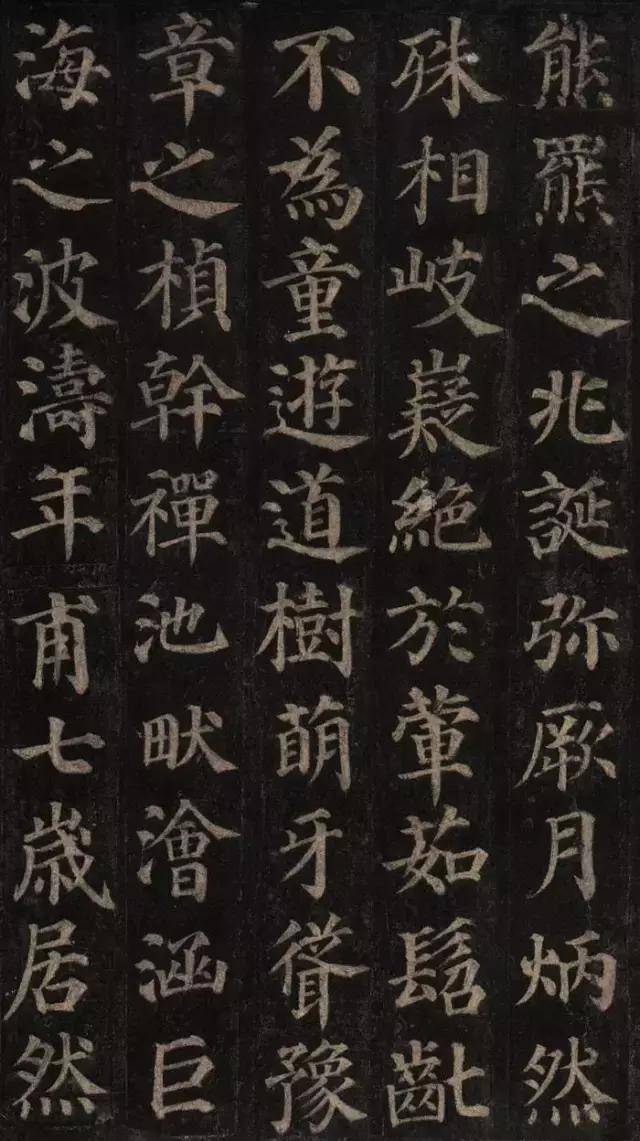 熊羆之兆誕弥厥月炳然
殊相岐嶷絶於葷茹髫齔
不為童遊道樹萌牙聳豫
章之楨幹禪池畎澮涵巨
海之波濤年甫七歲居然